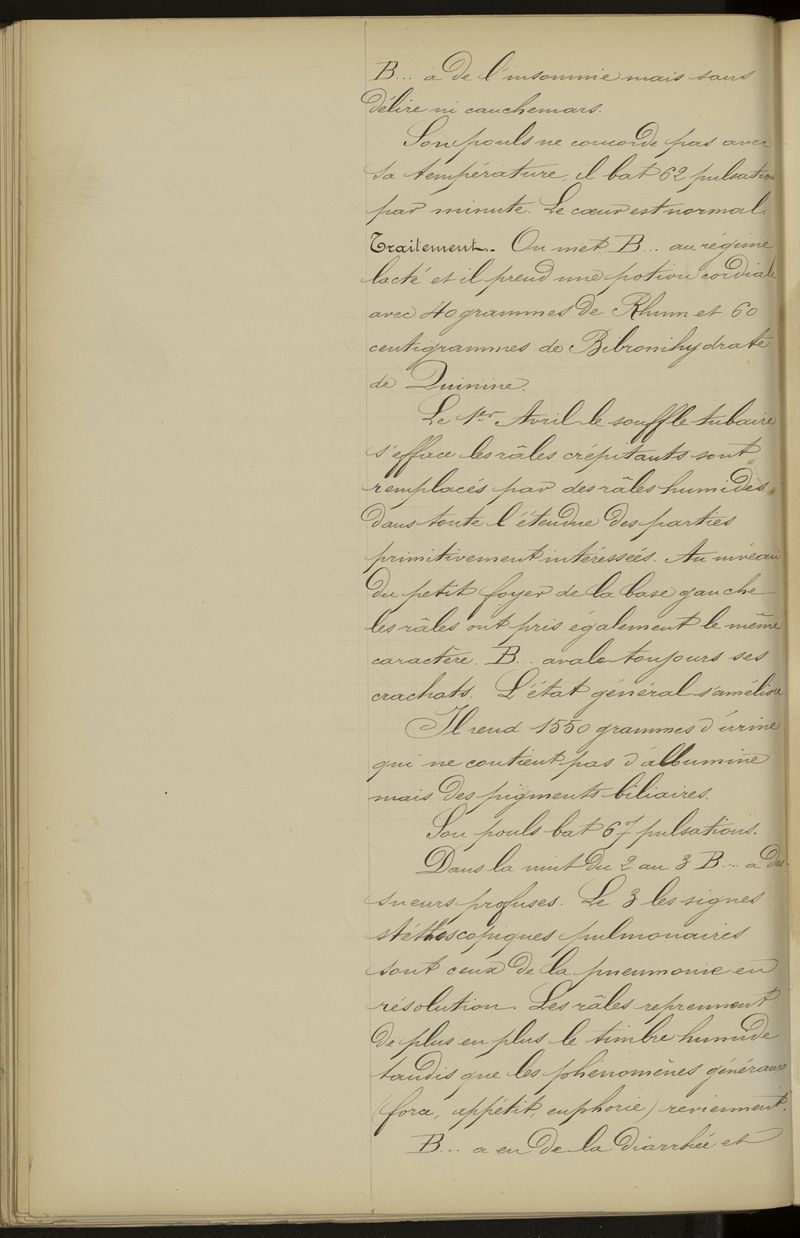 B... a de l'insomnie mais sans
délire ni cauchemars.
Son pouls ne concorde pas avec
sa température, il bat 62 pulsations
par minute. Le cœur est normal.
Traitement.- On met B... au régime
lacté et il prend une potion cordiale
avec 40 grammes de Rhum et 60
centigrammes de Bibromhydrate
de Quinine.
Le 1er Avril le souffle tubaire
s'efface les râles crépitants sont
remplacés par des râles humides
dans toute l'étendue des parties
primitivement intéressées. Au niveau
du petit foyer de la base gauche
les râles ont pris également le même
caractère. B... avale toujours ses
crachats. L'état général s'améliore
Il rend 1550 grammes d'urine
qui ne contient pas d'albumine
mais des pigments biliaires.
Son pouls bat 67 pulsations.
Dans la nuit du 2 au 3 B... a des
sueurs profuses. Le 3 les signes
stéthoscopiques pulmonaires
sont ceux de la pneumonie en
résolution. Les râles reprennent
de plus en plus le timbre humide
tandis que les phénomènes généraux
(force, appétit, euphorie) reviennent.
B... a eu de la diarrhée et